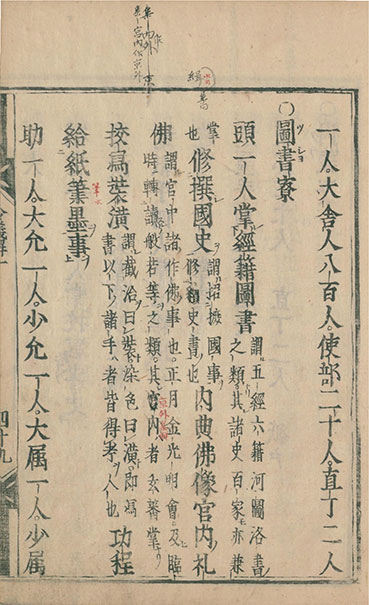 一人。大舍人八百人。使部二十人。直丁二人
〇圖書寮
頭一人。掌經籍圖書
謂五經六籍河圖洛書
之類其諸史百家亦兼
掌
也
修撰國史
謂招國事
修緝史書也
内典佛像宮内礼
佛
謂宮中諸作佛事也。正月金光明會及臨
時轉讀般若等之類。其宮内者玄審掌
挍寫裝潢
謂截治曰裝染色曰潢。即寫
書以下諸手者皆得考人也
功程
給紙筆墨事
助一人。大允一人。少允一人。大属一人。少属
四十九